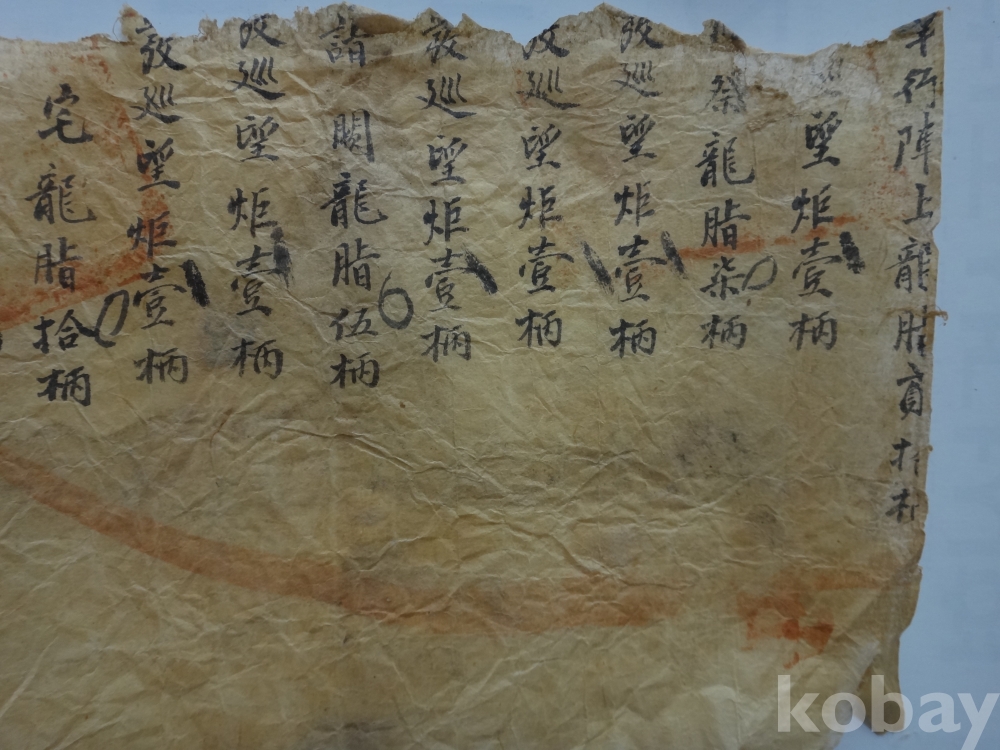 行陣上龍脂貳拾柄
望炬壹柄
祭龍脂柒柄
巡望炬壹柄
巡望炬壹柄
敦巡望炬壹柄
詣闕龍脂伍柄
巡望炬壹柄
敦巡望炬壹柄
宅龍脂拾柄
kobay